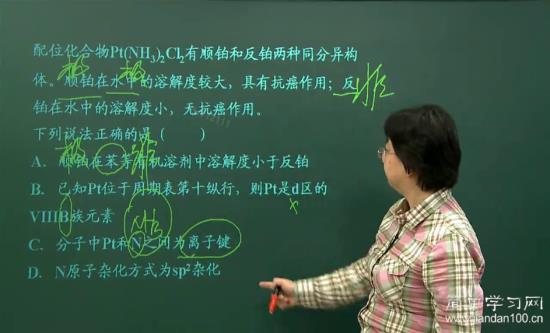 配位化合物Pt(NH₃)₂Cl₂有顺铂和反铂两种同分异构
体。顺铂在水中的溶解度较大，具有抗癌作用；反
铂在水中的溶解度小，无抗癌作用。
下列说法正确的是（　　）
A. 顺铂在苯等有机溶剂中溶解度小于反铂
B. 已知Pt位于周期表第十纵行，则Pt是d区的
VIIIB族元素
C. 分子中Pt和N之间为离子键
D. N原子杂化方式为sp²杂化
NH₃
x
简单学习网
www.jiandan100.cn